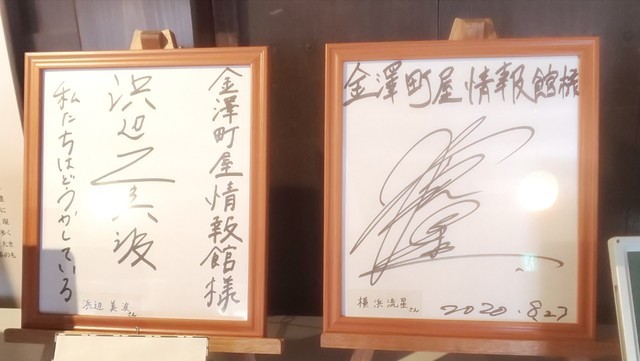 金澤町屋情報館様
浜辺美波
私たちはどうかしている
浜辺美波さん
金澤町屋情報館様
横浜流星さん
2020.8.27